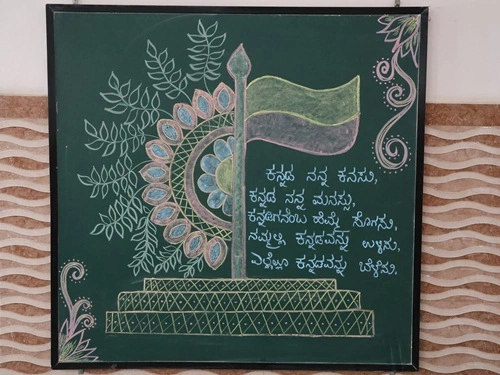 ಕನ್ನಡ ನನ್ನ ಕನಸು,
ಕನ್ನಡ ನನ್ನ ಮನಸ್ಸು,
ಕನ್ನಡಿಗನೆಂಬ ಹೆಮ್ಮೆ ಸೊಗಸು,
ನಮ್ಮಲ್ಲಿ ಕನ್ನಡವನ್ನು ಉಳಿಸು.
ಎಲ್ಲೆಲ್ಲೂ ಕನ್ನಡವನ್ನು ಬೆಳೆಸು.